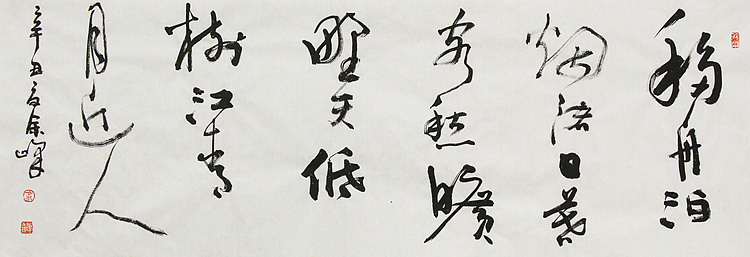 移舟泊
烟渚日暮
客愁曠
野天低
樹江清
月近人
辛丑夏余峰